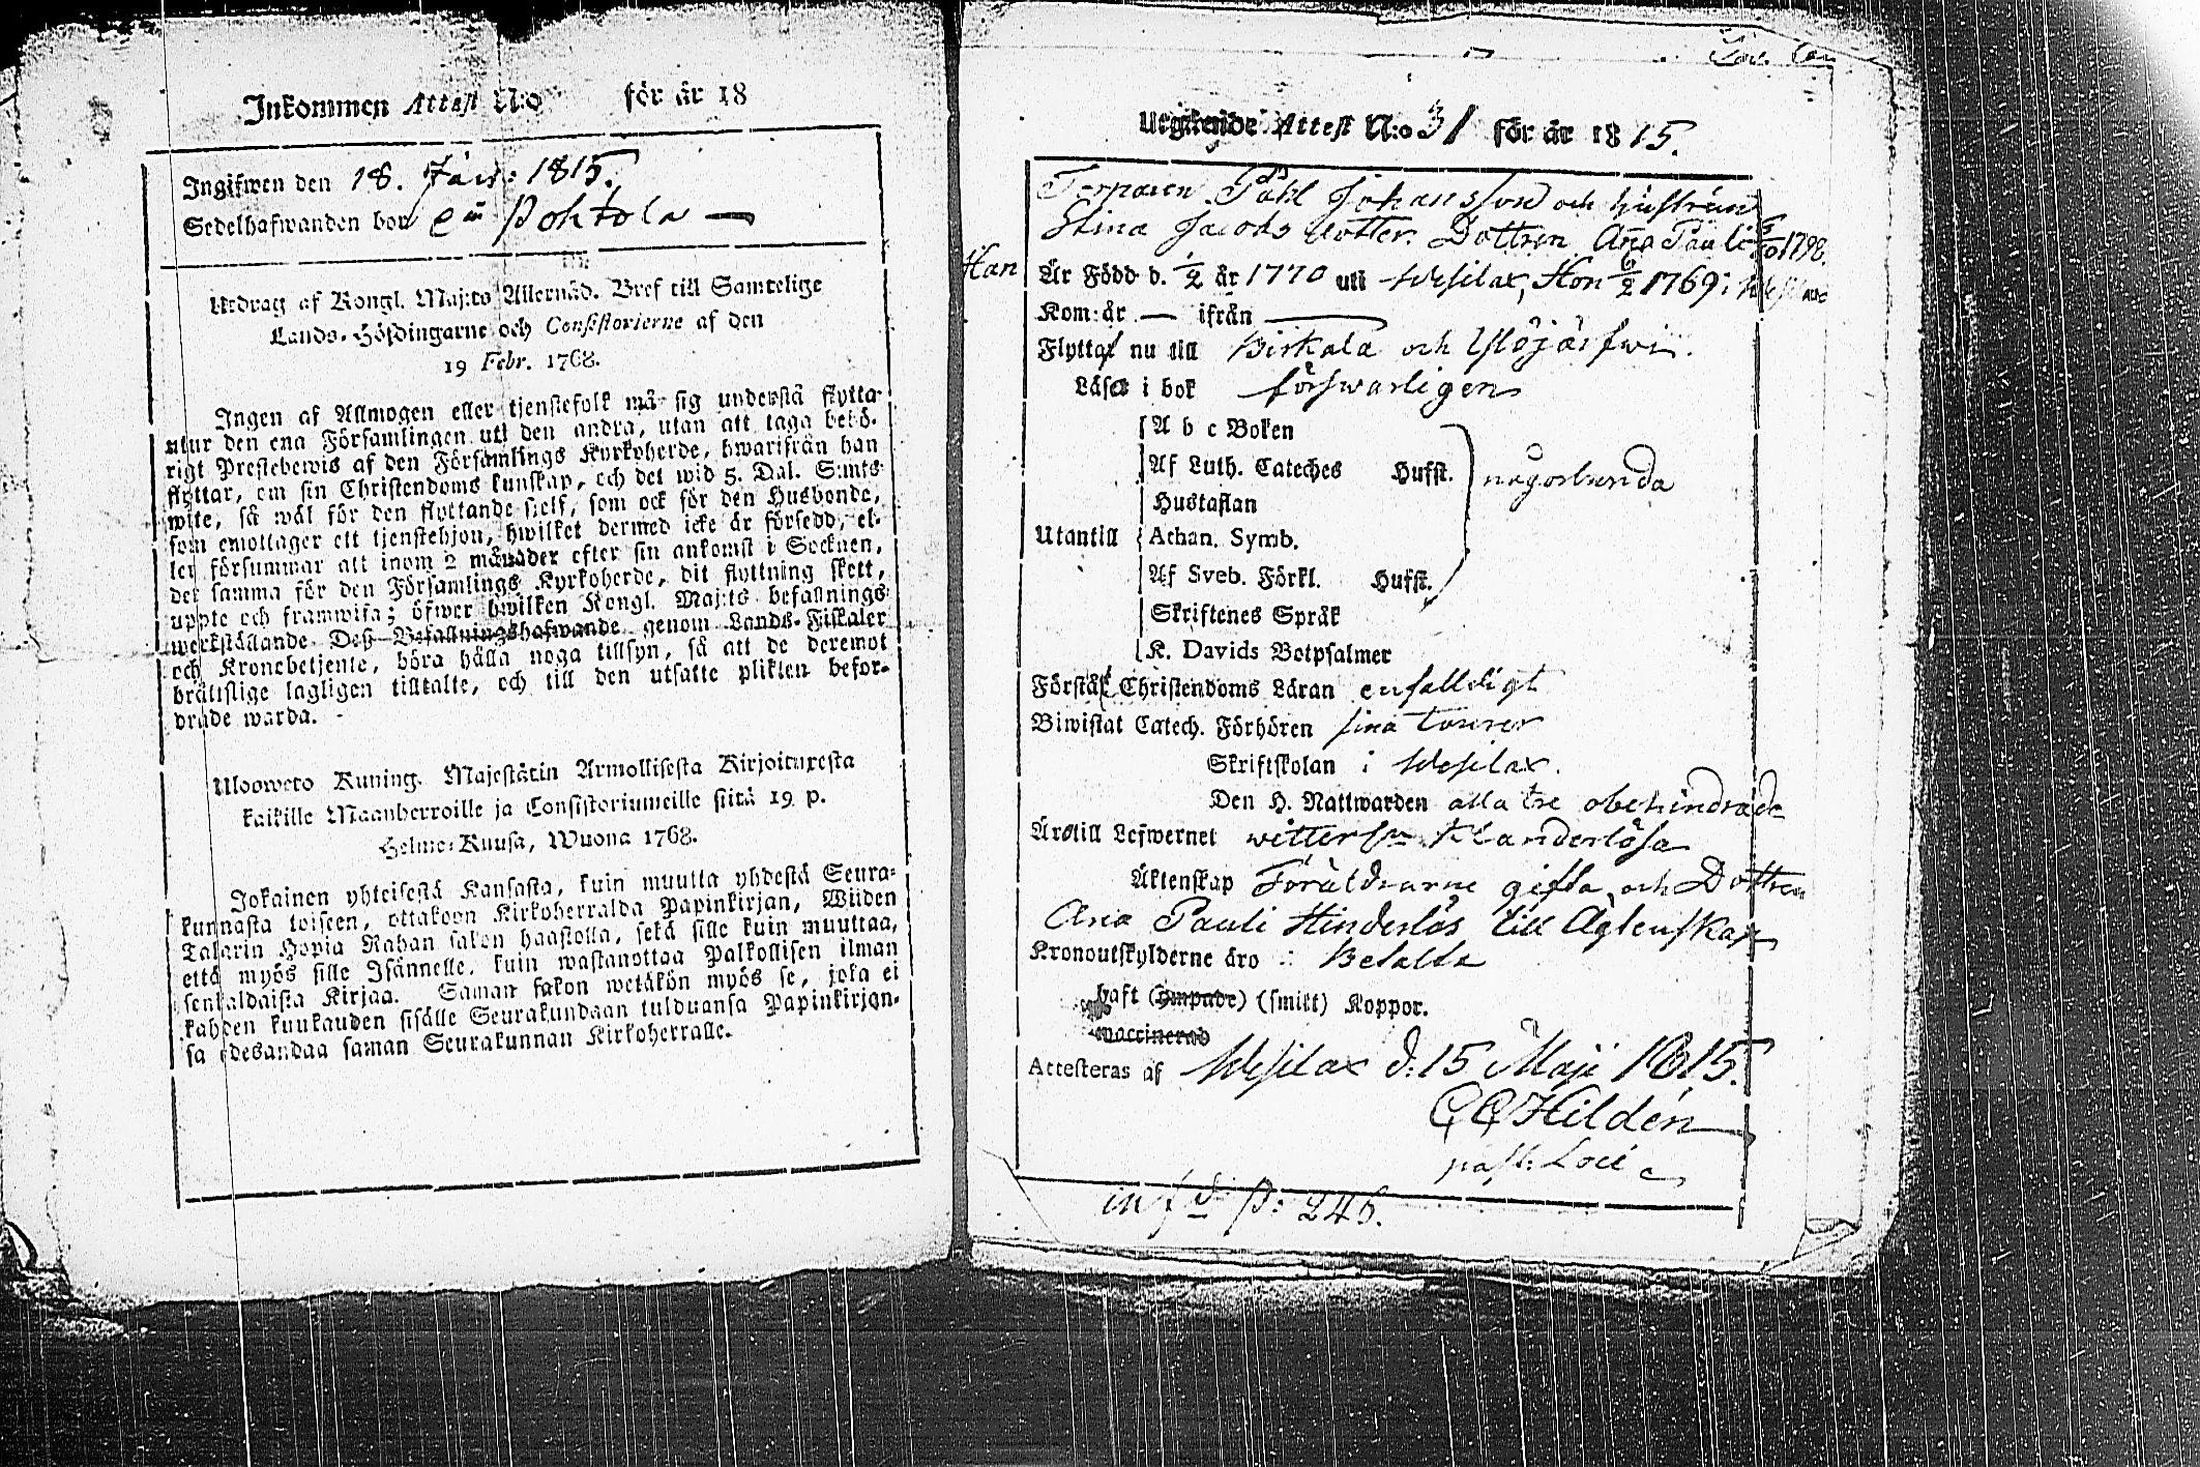 Inkommen Attest N:o för år 18
Ingifwen den 18. 1815.
Sedelhafwanden bor Pohtola —
Utdrag af Kongl. Maj:ts Allernåd. Bref till Samtelige
Lands-Höfdingarne och Consistorierne af den
19 Febr. 1768.
Ingen af Allmogen eller tjenstefolk må sig understå flytta
utur den ena Församlingen uti den andra, utan att taga behö-
rigt Prestebewis af den Församlings Kyrkoherde, hwarifrån han
flyttar, om sin Christendoms kunskap, och det wid 5. Dal. S:mts
wite, så wäl för den flyttande sjelf, som ock för den Husbonde,
som emottager ett tjenstehjon, hwilket dermed icke är försedd, el-
ler försummar att inom 2 månader efter sin ankomst i Socknen,
det samma för den Församlings Kyrkoherde, dit flyttning skett,
uppte och framwisa; öfwer hwilken Kongl. Maj:ts befallnings
werkställande Deß Befallningshafwande genom Lands-Fiskaler
och Kronebetjente, böra hålla noga tillsyn, så att de deremot
bråttslige lagligen tilltalte, och till den utsatte plikten befor-
drade warda.
Uloswето Kuning. Majestätin Armollisesta Kirjoituxesta
kaikille Maanherroille ja Consistoriumeille siitä 19 p.
Helme-Kuusa, Wuona 1768.
Jokainen yhteisestä Kansasta, kuin muutta yhdestä Seura-
kunnasta toiseen, ottakoon Kirkoherralda Papinkirjan, Wiiden
Talarin Hopia Rahan sakon haastolla, sekä sille kuin muuttaa,
että myös sille Isännelle, kuin wastanottaa Palkollisen ilman
senkaldaista Kirjaa. Saman sakon wetäkön myös se, joka ei
kahden kuukauden sisälle Seurakundaan tulduansa Papinkirjan-
sa edesandaa saman Seurakunnan Kirkoherralle.
Utgående Attest N:o 31 för år 1815.
Torparen Påhl Johansson och hustrun
Stina Jacobs dotter. Dottren Ana Pauli 1798.
Han Är Född d. 1/2 år 1770 uti Wesilax, Hon 6/2 1769 i Wesilax
Kom: år — ifrån —
Flytta nu till Birkala och Ylöjärfwi.
Läsa i bok förswarligen
A b c Boken
Af Luth. Cateches Hufst. någorlunda
Hustaflan
Utantill Athan. Symb.
Af Sveb. Förkl. Hufst.
Skriftenes Språk
K. Davids Botpsalmer
Förstå Christendoms Läran enfalldigt
Biwistat Catech. Förhören sina tourer
Skriftskolan i Wesilax.
Den H. Nattwarden alla tre obehindrade
Äro till Lefwernet klanderlösa
Äktenskap Föräldrarne gifta, och Dottren
Ana Pauli Hinderlös till Ägtenskap
Kronoutskylderne äro Betalta
haft (ympade) (smitt) Koppor.
waccinerad
Attesteras af Wesilax d: 15 Maji 1815.
Hildén
past: Loci
inf d p: 246.